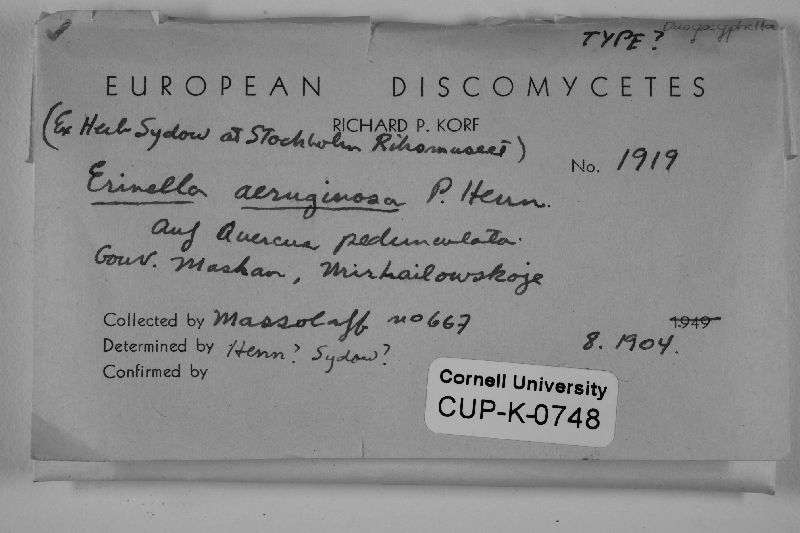 Dasyscyphella
TYPE?
EUROPEAN DISCOMYCETES
RICHARD P. KORF
(Ex Herb Sydow at Stockholm Riksmuseet)
No. 1919
Erinella aeruginosa P. Henn.
auf Quercus pedunculata.
Gouv. Moskau, Mirhailowskoje
Collected by Massolaff no 667
1949
8. 1904.
Determined by Henn? Sydow?
Confirmed by
Cornell University
CUP-K-0748